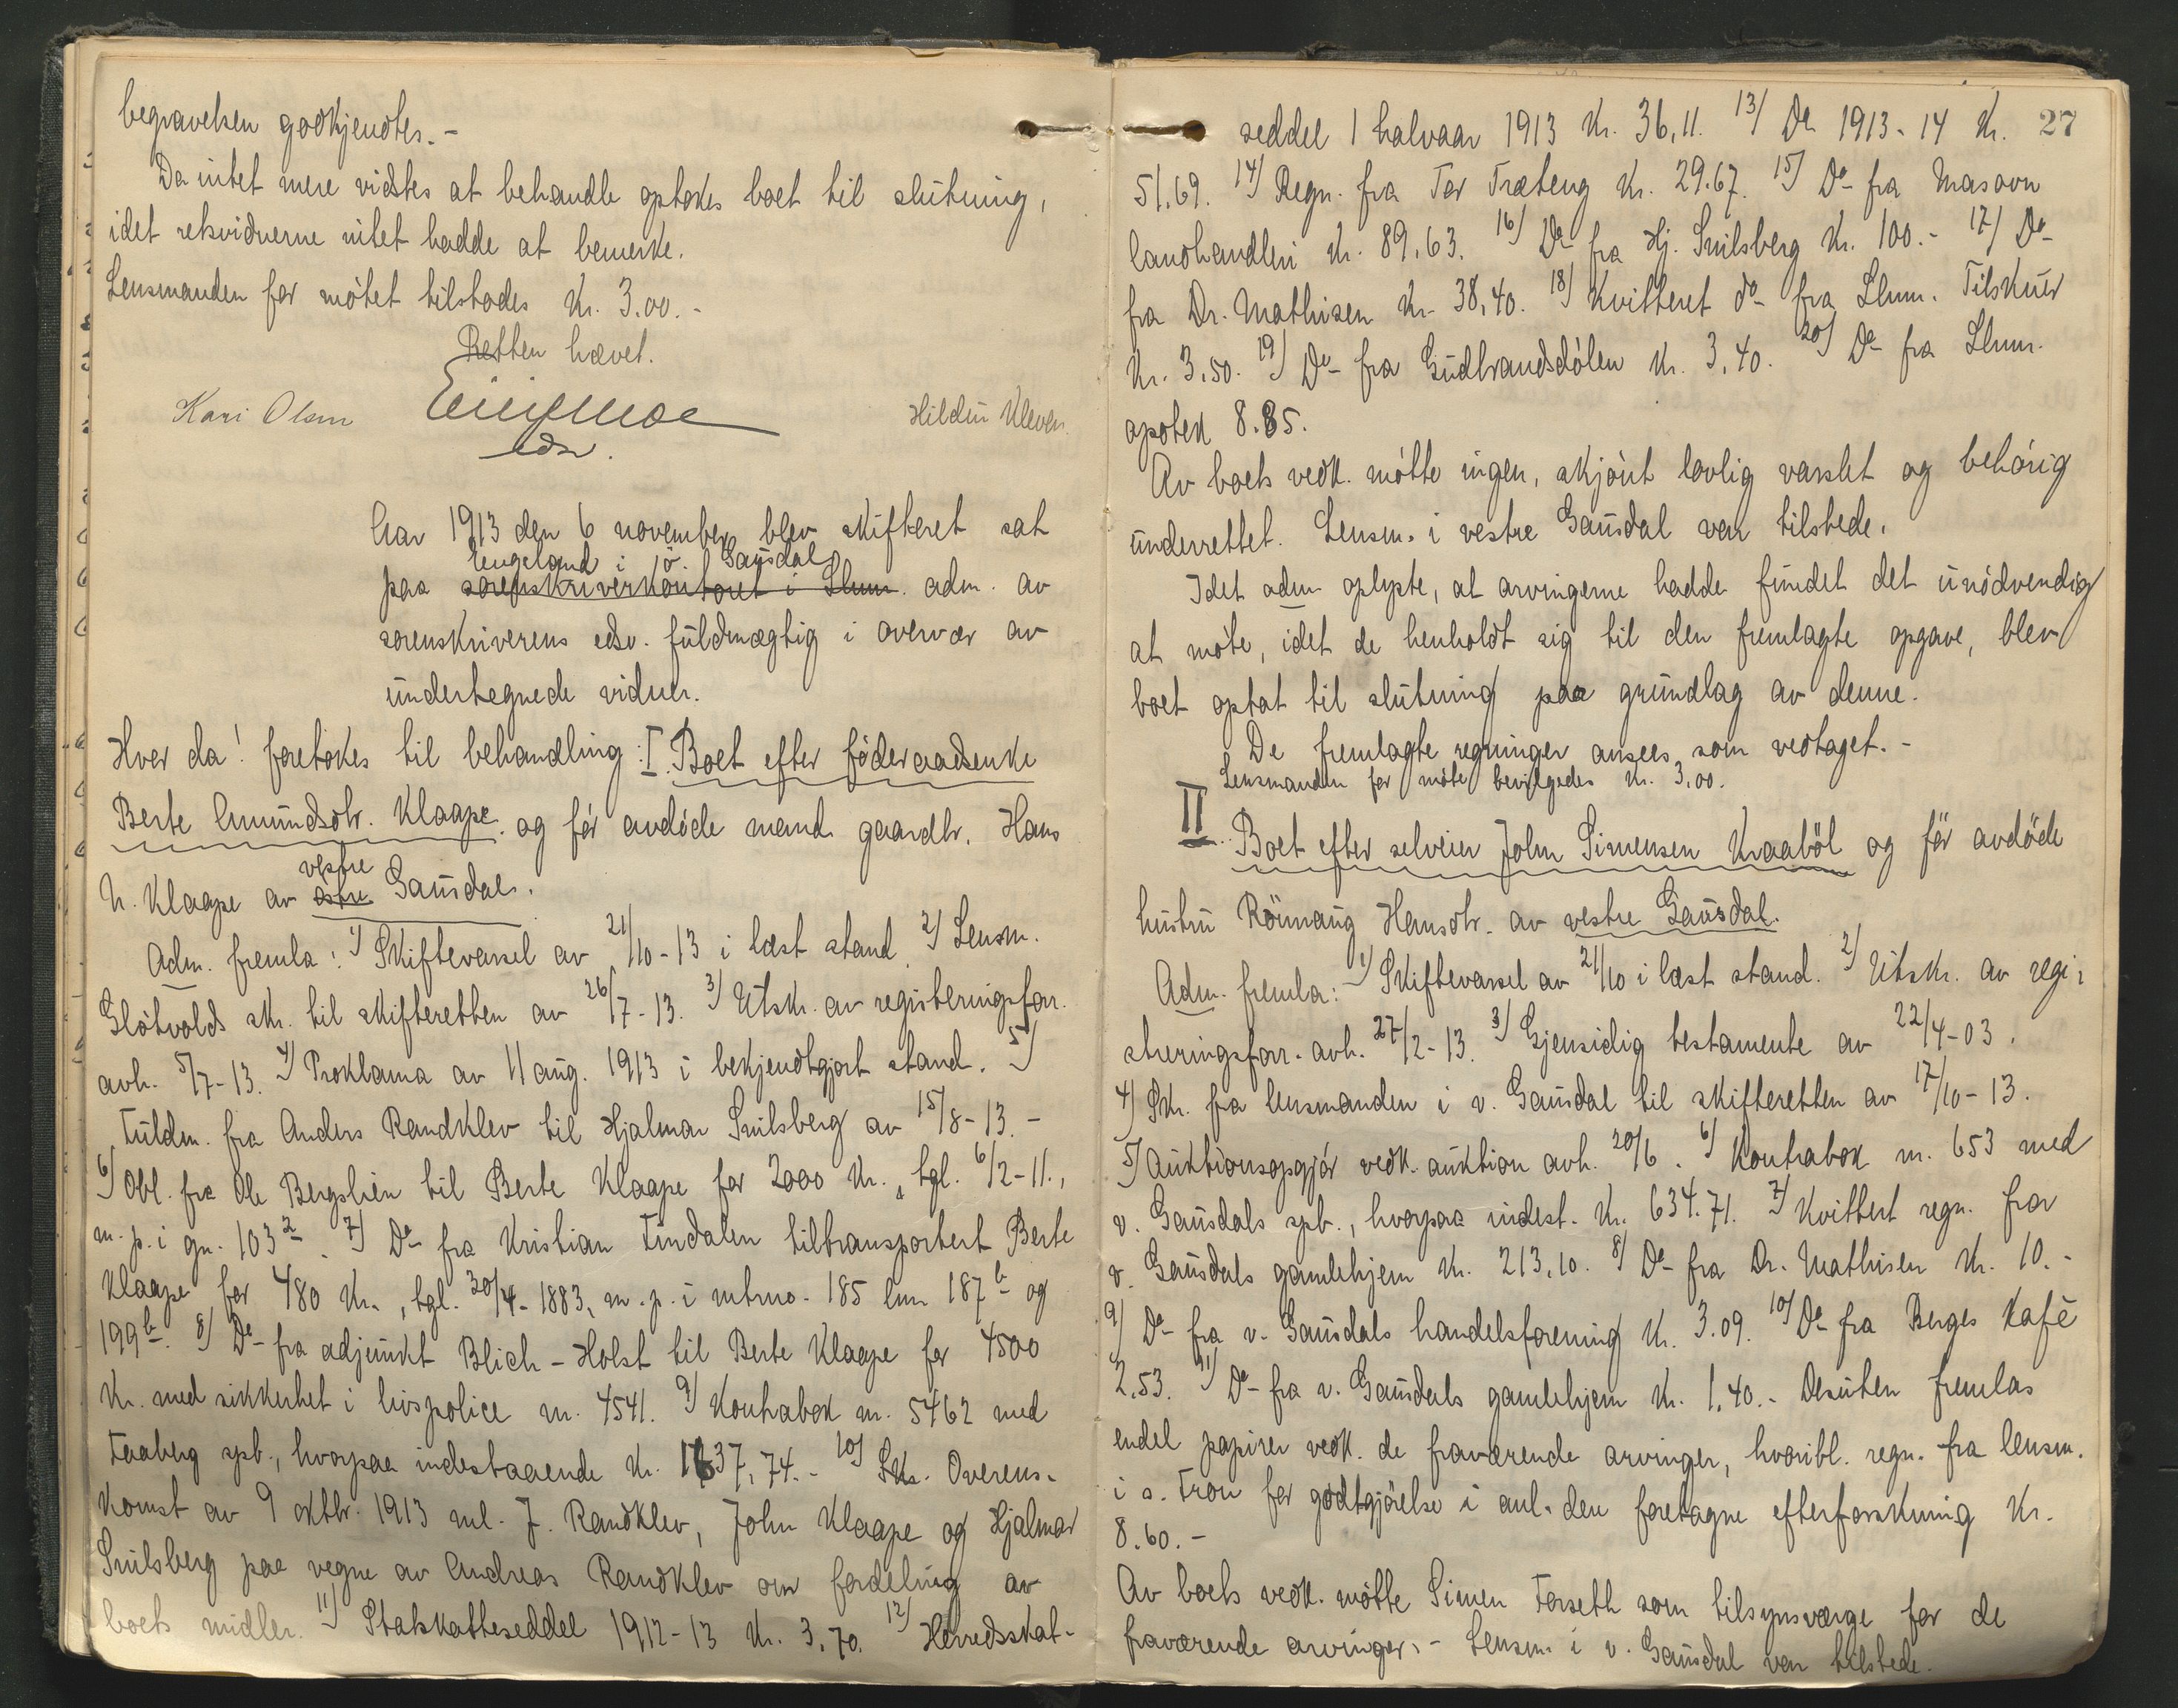 begravelsen godkjendtes.-
Da intet mere vidstes at behandle optokes boet til slutning,
idet rekvidnerne intet hadde at bemerke.
Lensmanden for mötet tilstodes Kr. 3.00.-
Retten hævet.
Kari Olsen
edsv.
Hildur Kleven.
Aar 1913 den 6 november blev skifteret sat
Engeland i ö. Gausdal
paa sorenskriverkontoret i Lhmr. adm. av
sorenskriverens edsv. fuldmægtig i overvær av
undertegnede vidner.
Hvor da! foretokes til behandling: I. Boet efter föderaadsenke
Berte Amundsdtr. Klaape og för avdöde mand gaardbr. Hans
vestre
H. Klaape av östre Gausdal.
Adm. fremla: 1) Skiftevarsel av 21/10-13 i læst stand. 2) Lensm.
Slötvolds skr. til skifteretten av 26/7-13. 3) Utskr. av registeringsforr.
avh. 5/7-13. 4) Proklama av 11 aug. 1913 i bekjendtgjort stand. 5)
Fuldm. fra Anders Randklev til Hjalmar Snilsberg av 15/8-13.-
6) Obl. fra Ole Bergslien til Berte Klaape for 2000 Kr., tgl. 6/2-11.,
m. p. i gn. 103 2. 7) Do- fra Kristian Findalen tiltransportert Berte
Klaape for 480 Kr., tgl. 20/4-1883, m. p. i mtrno. 185 lnr. 187 b og
199 b. 8) Do- fra adjunkt Blich-Holst til Berte Klaape for 4500
Kr. med sikkerhet i livspolice nr. 4541. 9) Kontrabok nr. 5462 med
Faaberg spb., hvorpaa indestaaende Kr. 1637,74.- 10) Skr. Overens-
komst av 9 oktbr. 1913 ml. J. Randklev, John Klaape og Hjalmar
Snilsberg paa vegne av Andreas Randklev om fordeling av
boets midler. 11) Statskatteseddel 1912-13 Kr. 3,70. 12) Herredsskat-
27
seddel 1 halvaar 1913 Kr. 36,11. 13) Do 1913-14 Kr.
51.69. 14) Regn. fra Tor Træteng Kr. 29.67. 15) Do- fra Masovn
landhandleri Kr. 89.63. 16) Do- fra Hj. Snilsberg Kr. 100.- 17) Do-
fra Dr. Mathisen Kr. 38,40. 18) Kvitteret do- fra Lhmr. Tilskuer
Kr. 3,50. 19) Do- fra Gudbrandsdölen Kr. 3,40. 20) Do- fra Lhmr.
apotek 8.85.
Av boets vedk. mötte ingen, skjönt lovlig varslet og behörig
underrettet. Lensm. i vestre Gausdal var tilstede.
Idet adm. oplyste, at arvingerne hadde fundet det unödvendig
at möte, idet de henholdt sig til den fremlagte opgave, blev
boet optat til slutning paa grundlag av denne.
De fremlagte regninger ansees som vedtaget.-
Lensmanden for möte bevilgedes Kr. 3,00.
II
Boet efter selveier John Simensen Kraaböl og för avdöde
hustru Rönnaug Hansdtr. av vestre Gausdal.
Adm. fremla: 1) Skiftevarsel av 21/10 i læst stand. 2) Utskr. av regi-
streringsforr. avh. 27/2-13. 3) Gjensidig testamente av 22/4-03.
4) Skr. fra lensmanden i v. Gausdal til skifteretten av 17/10-13.
5) Auktionsopgjör vedk. auktion avh. 20/6. 6) Kontrabok nr. 653 med
v. Gausdals spb., hvorpaa indest. Kr. 634.71. 7) Kvittert regn. for
v. Gausdals gamlehjem Kr. 213,10. 8) Do- fra Dr. Mathisen Kr. 10.-
9) Do- fra v. Gausdals handelsforening Kr. 3.09. 10) Do- fra Berges Kafé
2,53. 11) Do- fra v. Gausdals gamlehjem Kr. 1,40.- Desuten fremlas
endel papirer vedk. de fraværende arvinger, hvoribl. regn. fra lensm.
i s. Fron for godtgjörelse i anl. den foretagne efterforskning Kr.
8.60.-
Av boets vedk. mötte Simen Forseth som tilsynsværge for de
fraværende arvinger.- Lensm. i v. Gausdal var tilstede.